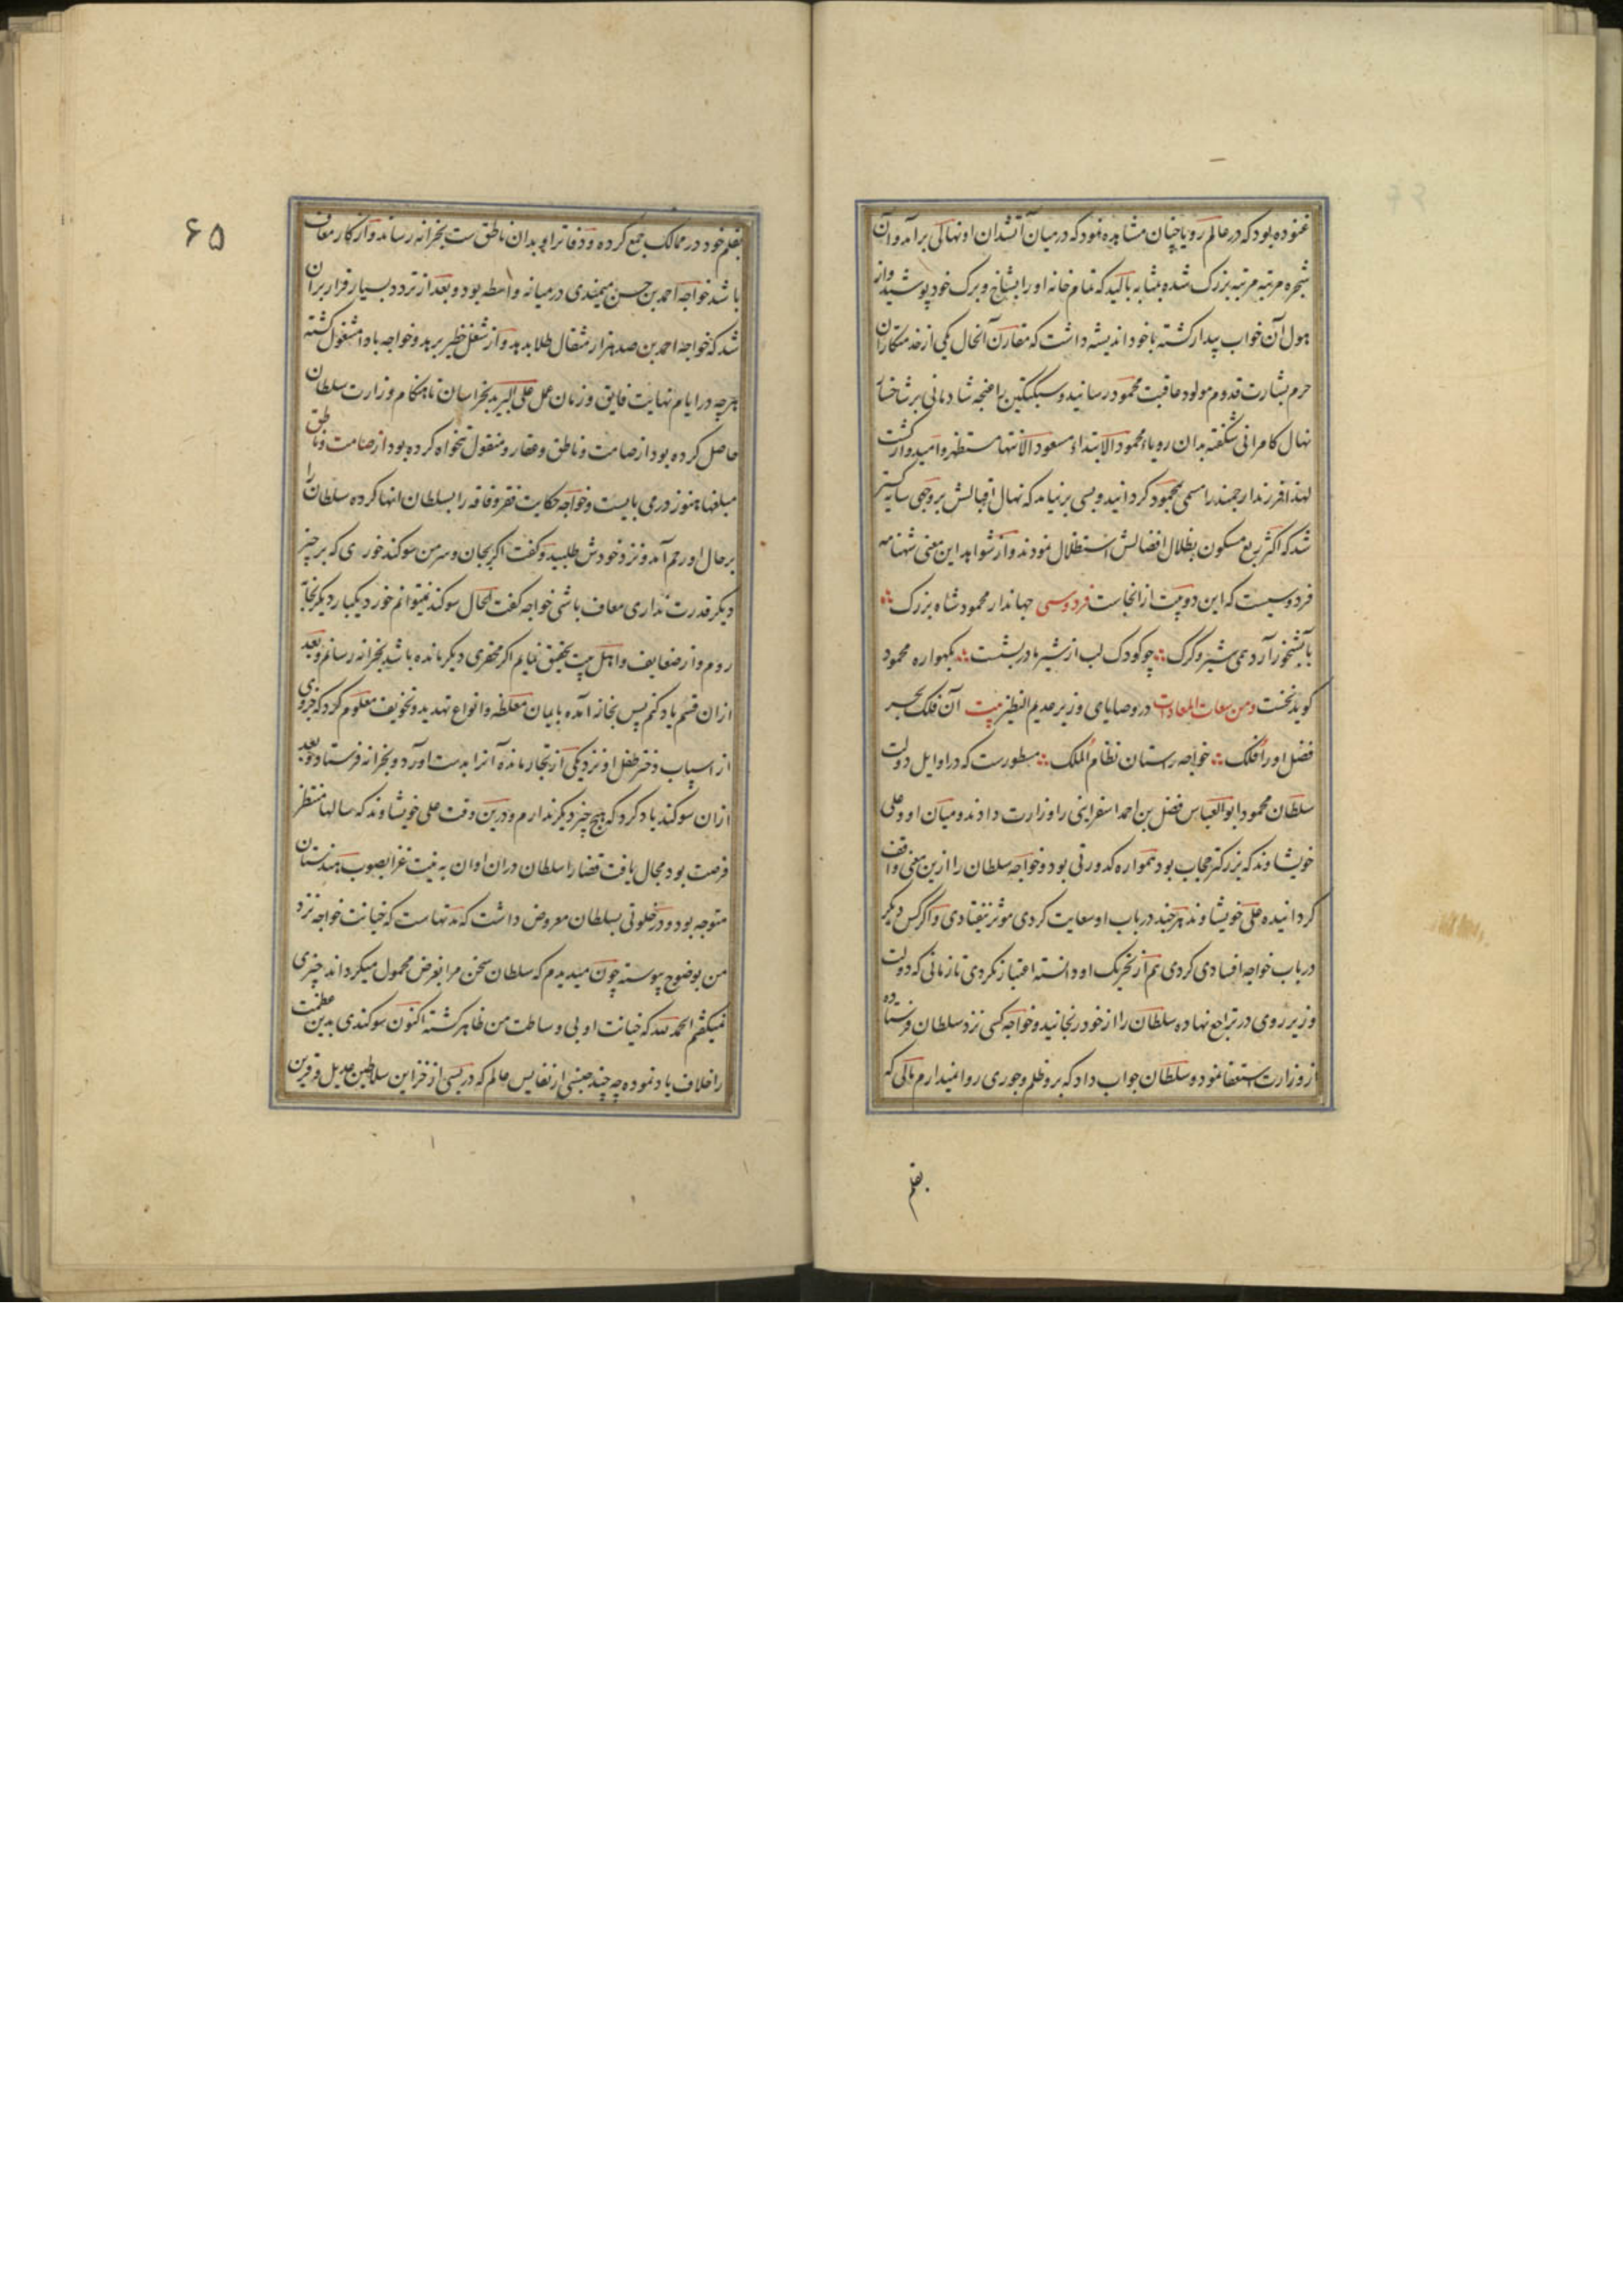 غنوده بود که در عالم رویا چنان مشاهده نمود که درمیان آتشدان او نهالی برآمد و آن
شجره مرتبه مرتبه بزرک شده بمثابه بالید که تمام خانه او را بشاخ و برک خود پوشید و از
هول آن خواب بیدار کشته با خود اندیشه داشت که مقارن آنحال یکی از خدمتکاران
حرم بشارت قدوم مولود عاقبت محمود رسانید و سبکتکین را غنچه شادمانی بر شاخسار
نهال کامرانی شکفته بدان رویا محمود الابتداء مسعود الانتها مستظهر و امیدوار کشت
لهذا فرزند ارجمند را مسمی بمحمود کردانید و بسی برنیامد که نهال اقبالش بروجهی سایه کستر
شد که اکثر ربع مسکون بظلال افضالش استظلال نمودند و از شواهد این معنی شهنامه
فردوسیست که این دو بیت از انجاست فردوسی جهاندار محمود شاه بزرک
بآبشخور آرد همی شیر و کرک چو کودک لب از شیر مادر بشست بکهواره محمود
کوید نخست ومن سعات المعادات در وصایای وزیر عدیم النظیر بیت آن فلک بحر
فضل او را فلک خواجه رستان نظام الملک مسطورست که در اوایل دولت
سلطان محمود ابوالعباس فضل بن احمد اسفراینی را وزارت دادند و میان او و علی
خویشاوند که بزرکتر حجاب بود همواره کدورتی بود و خواجه سلطان را ازین معنی واقف
کردانیده علی خویشاوند هرچند در باب او سعایت کردی موثر نیفتادی و اکر کس دیکر
در باب خواجه افسادی کردی هم از تحریک او دانسته اعتبار نکردی تا زمانی که دولت
وزیر روی در تراجع نهاده سلطان را از خود رنجانید و خواجه کسی نزد سلطان فرستاده
از وزارت استعفا نمود و سلطان جواب داد که برو ظلم و جوری روا نمیدارم مالی که
بقلم
۶۵
بقلم خود در ممالک جمع کرده و دفاتر او بدان ناطق ست بخزانه رساند و از کار معاف
باشد خواجه احمد بن حسن میمندی درمیانه واسطه بود و بعد از تردد بسیار قرار بران
شد که خواجه احمد بن صد هزار مثقال طلا بدهد و از شغل خطیر برهد و خواجه باداء مشغول کشته
هرچه در ایام نهایت فایق و زمان عمل علی البرید بخراسان تا هنکام وزارت سلطان
حاصل کرده بود از صامت و ناطق و عقار و منقول تنخواه کرده بود از صامت و ناطق
مبلغها هنوز در می بایست و خواجه حکایت فقر و فاقه را بسلطان انها کرده سلطان را
بر حال او رحم آمد و نزد خودش طلبید و کفت اکر بجان و سر من سوکند خوری که برچیز
دیکر قدرت نداری معاف باشی خواجه کفت الحال سوکند نمیتوانم خورد یکبار دیکر بخانه
روم و از ضعایف و اهل بیت تحقیق نمایم اکر محقری دیکر مانده باشد بخزانه رسانم و بعد
ازان قسم یاد کنم پس بخانه آمده بایمان مغلظه و انواع تهدید و تخویف معلوم کرد که جزوی
از اسباب دختر طفل او نزد یکی از تجار مانده آنرا بدست آورد و بخزانه فرستاد و بعد
ازان سوکند یاد کرد که هیچ چیز دیکر ندارم و درین وقت علی خویشاوند که سالها منتظر
فرصت بود مجال یافت قضا را سلطان دران اوان به نیت غزا بصوب هندستان
متوجه بود و در خلوتی بسلطان معروض داشت که مدتهاست که خیانت خواجه نزد
من بوضوح پیوسته چون میدیدم که سلطان سخن مرا بغرض محمول میکرداند چیزی
نمیکفتم الحمد لله که خیانت او بی وساطت من ظاهر کشته اکنون سوکندی بدین عظمت
را خلاف یاد نموده چه چند جنسی از نفایس عالم که در بسی از خزاین سلاطین عدیل و قرین